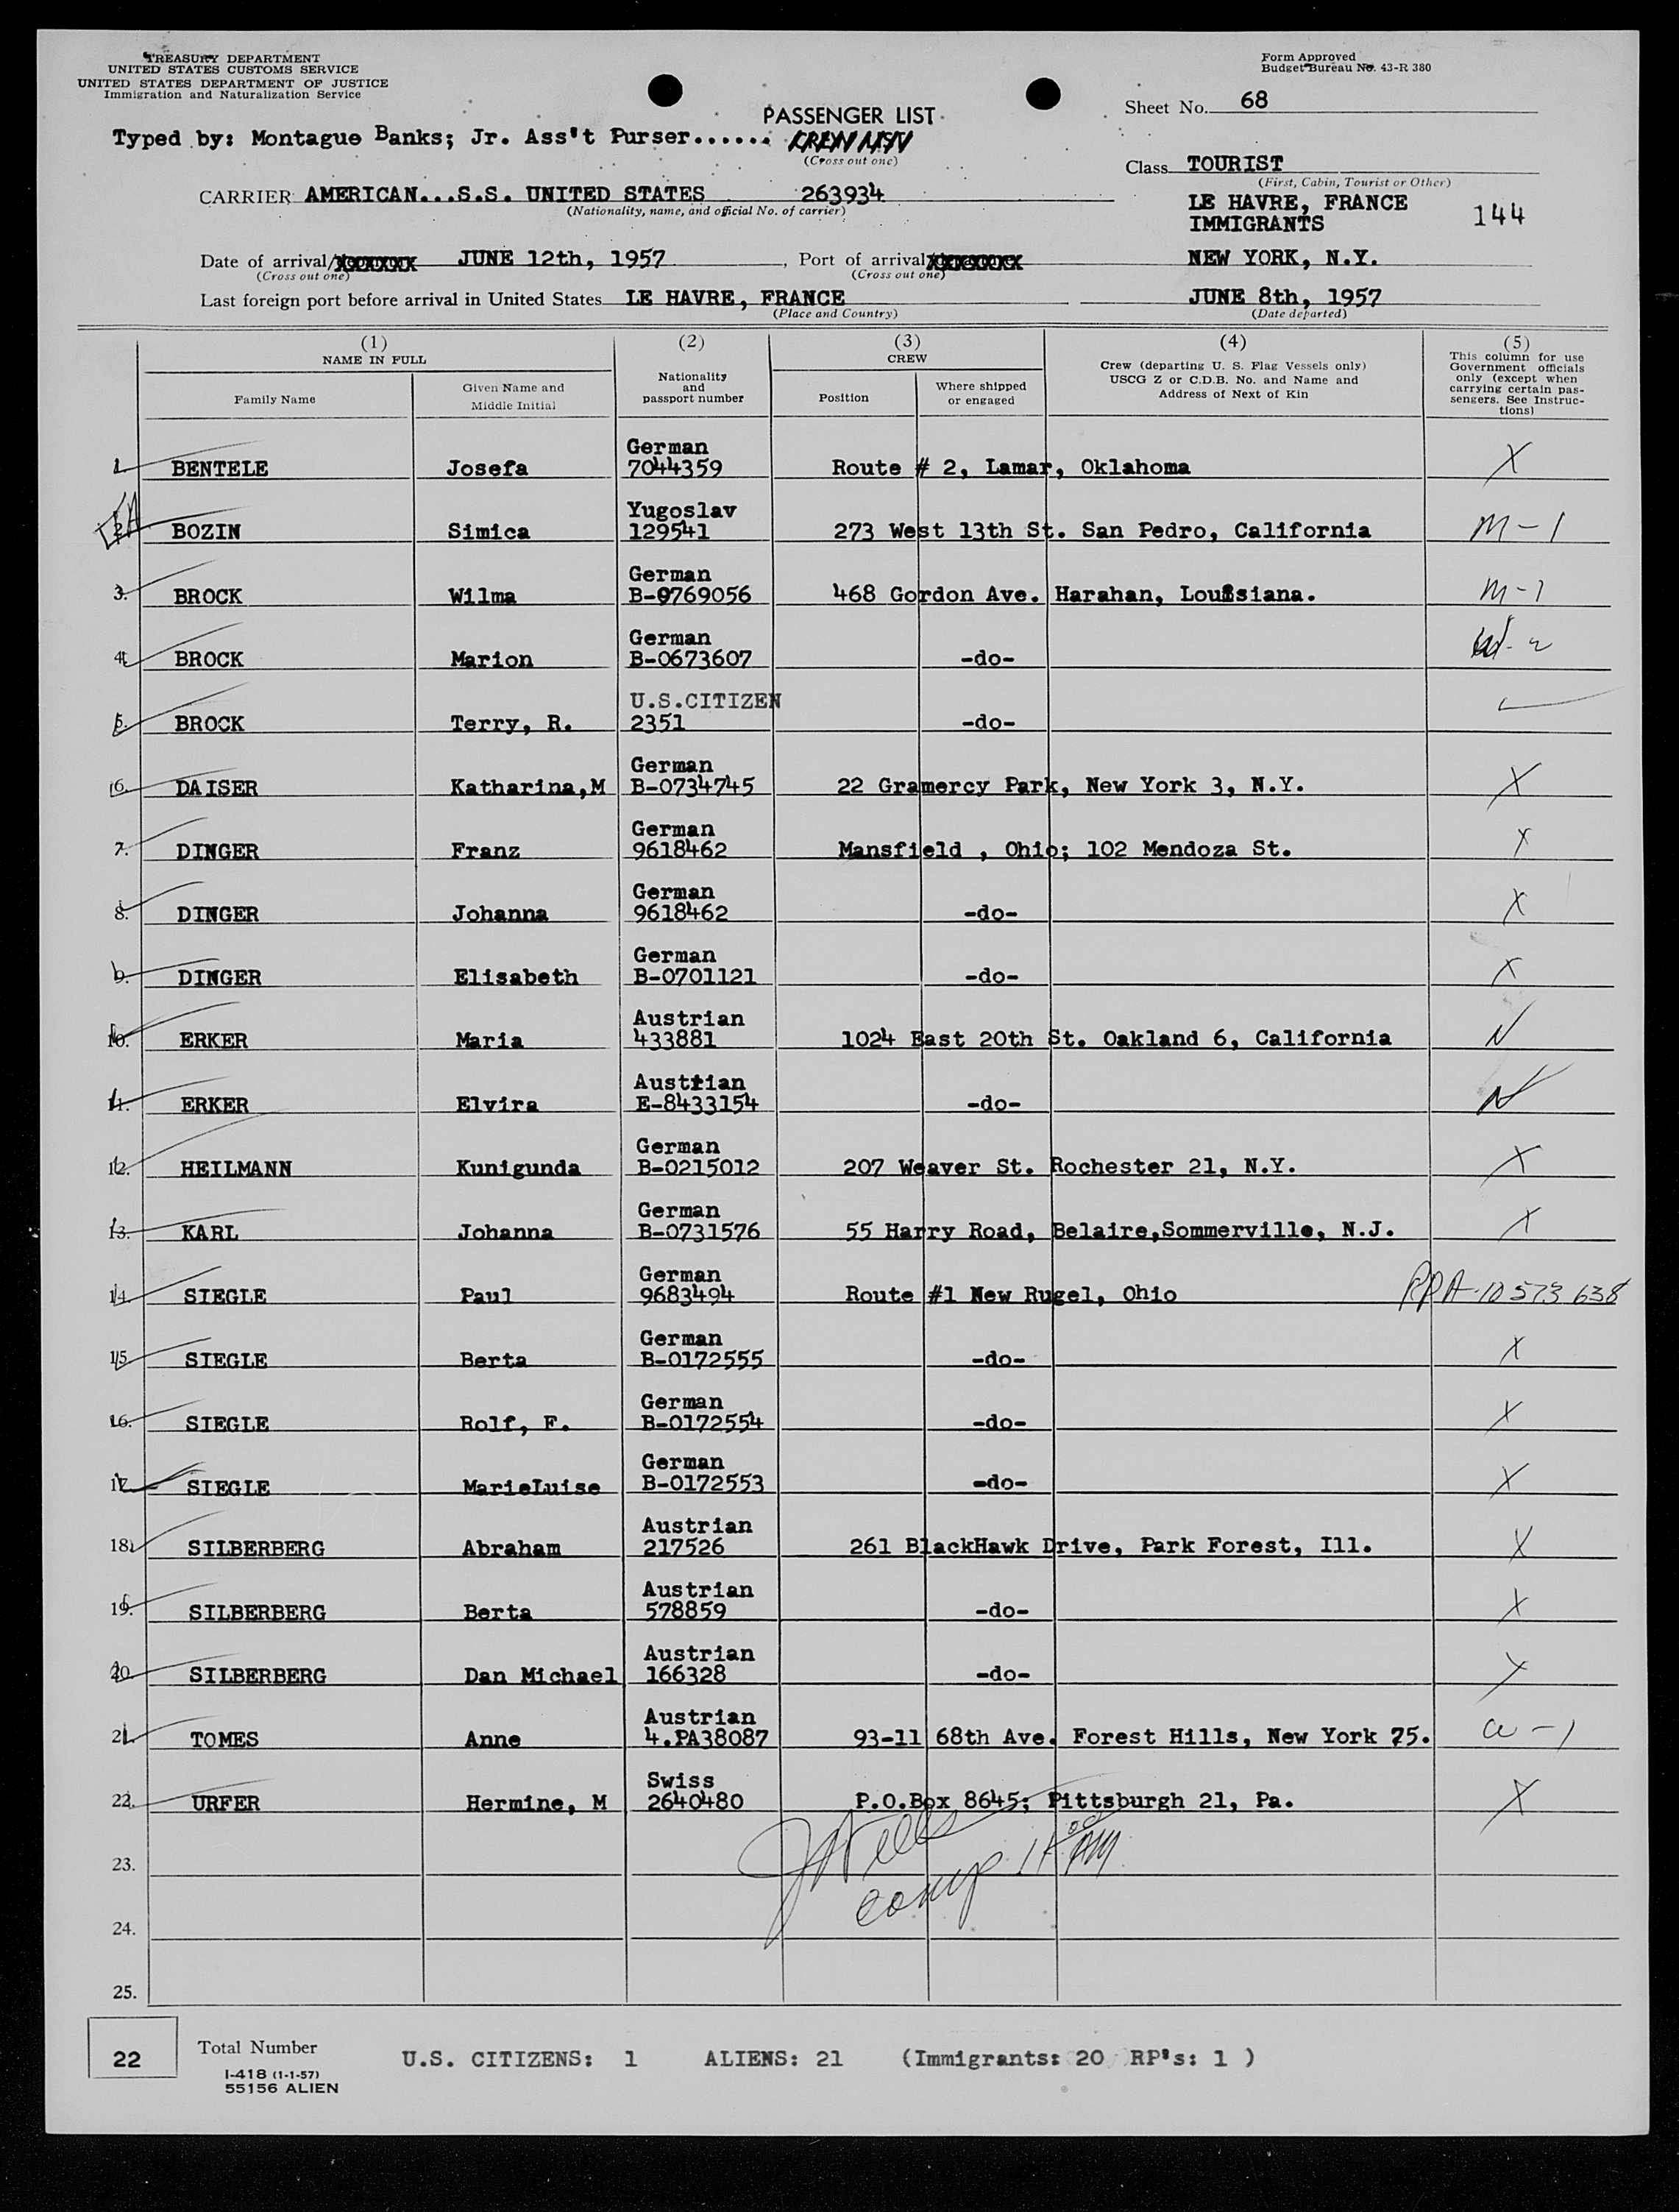 TREASURY DEPARTMENT
UNITED STATES CUSTOMS SERVICE
UNITED STATES DEPARTMENT OF JUSTICE
Immigration and Naturalization Service
Form Approved
Budget Bureau No. 43-R 380
PASSENGER LIST
Sheet No. 68
Typed by: Montague Banks; Jr. Ass't Purser...... CREW LIST
(Cross out one)
Class TOURIST
(First, Cabin, Tourist or Other)
CARRIER AMERICAN...S.S. UNITED STATES 263934
(Nationality, name, and official No. of carrier)
LE HAVRE, FRANCE
IMMIGRANTS
144
Date of arrival/ JUNE 12th, 1957, Port of arrival NEW YORK, N.Y.
(Cross out one) (Cross out one)
Last foreign port before arrival in United States LE HAVRE, FRANCE JUNE 8th, 1957
(Place and Country) (Date departed)
(1) (2) (3) (4) (5)
NAME IN FULL
Family Name
Given Name and Middle Initial
Nationality and passport number
CREW
Position
Where shipped or engaged
Crew (departing U. S. Flag Vessels only)
USCG Z or C.D.B. No. and Name and
Address of Next of Kin
This column for use
Government officials
only (except when
carrying certain pas-
sengers. See Instruc-
tions)
1. BENTELE Josefa German 7044359 Route # 2, Lamar, Oklahoma X
2. BOZIN Simica Yugoslav 129541 273 West 13th St. San Pedro, California M-1
3. BROCK Wilma German B-0769056 468 Gordon Ave. Harahan, Louisiana. M-1
4. BROCK Marion German B-0673607 -do-
5. BROCK Terry, R. U.S.CITIZEN 2351 -do-
6. DAISER Katharina,M German B-0734745 22 Gramercy Park, New York 3, N.Y. X
7. DINGER Franz German 9618462 Mansfield , Ohio; 102 Mendoza St. X
8. DINGER Johanna German 9618462 -do- X
9. DINGER Elisabeth German B-0701121 -do- X
10. ERKER Maria Austrian 433881 1024 East 20th St. Oakland 6, California N
11. ERKER Elvira Austrian E-8433154 -do- N
12. HEILMANN Kunigunda German B-0215012 207 Weaver St. Rochester 21, N.Y. X
13. KARL Johanna German B-0731576 55 Harry Road, Belaire,Sommerville, N.J. X
14. SIEGLE Paul German 9683494 Route #1 New Rugel, Ohio RPA-10 573 638
15. SIEGLE Berta German B-0172555 -do- X
16. SIEGLE Rolf, F. German B-0172554 -do- X
17. SIEGLE MarieLuise German B-0172553 -do- X
18. SILBERBERG Abraham Austrian 217526 261 BlackHawk Drive, Park Forest, Ill. X
19. SILBERBERG Berta Austrian 578859 -do- X
20. SILBERBERG Dan Michael Austrian 166328 -do- X
21. TOMES Anne Austrian 4.PA38087 93-11 68th Ave. Forest Hills, New York 75. a-1
22. URFER Hermine, M Swiss 2640480 P.O.Box 8645; Pittsburgh 21, Pa. X
23.
24.
25.
22 Total Number U.S. CITIZENS: 1 ALIENS: 21 (Immigrants: 20 RP's: 1 )
I-418 (1-1-57)
55156 ALIEN